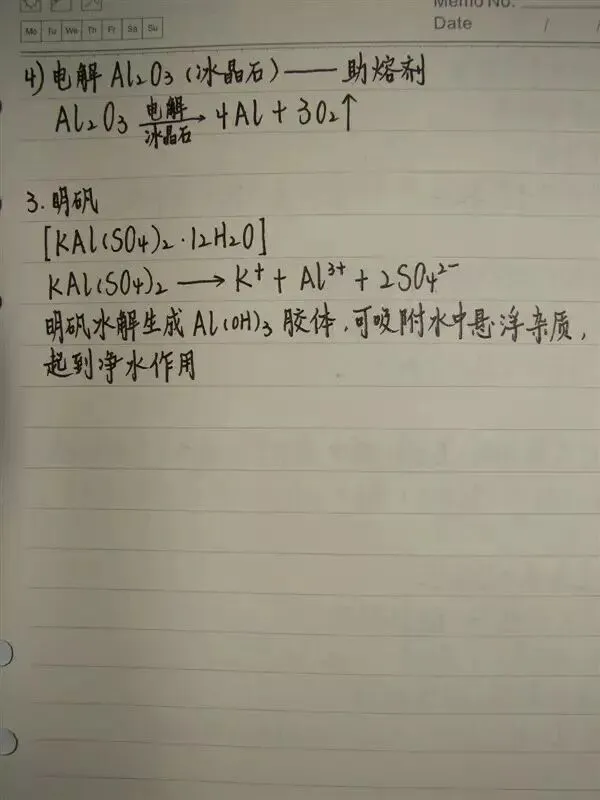 Memo No.
Mo Tu We Th Fr Sa Su
Date / /
4) 电解 Al₂O₃ (冰晶石) —— 助熔剂
Al₂O₃ 电解/冰晶石→ 4Al + 3O₂↑
3. 明矾
[KAl(SO₄)₂·12H₂O]
KAl(SO₄)₂ ⟶ K⁺ + Al³⁺ + 2SO₄²⁻
明矾水解生成 Al(OH)₃ 胶体,可吸附水中悬浮杂质,
起到净水作用